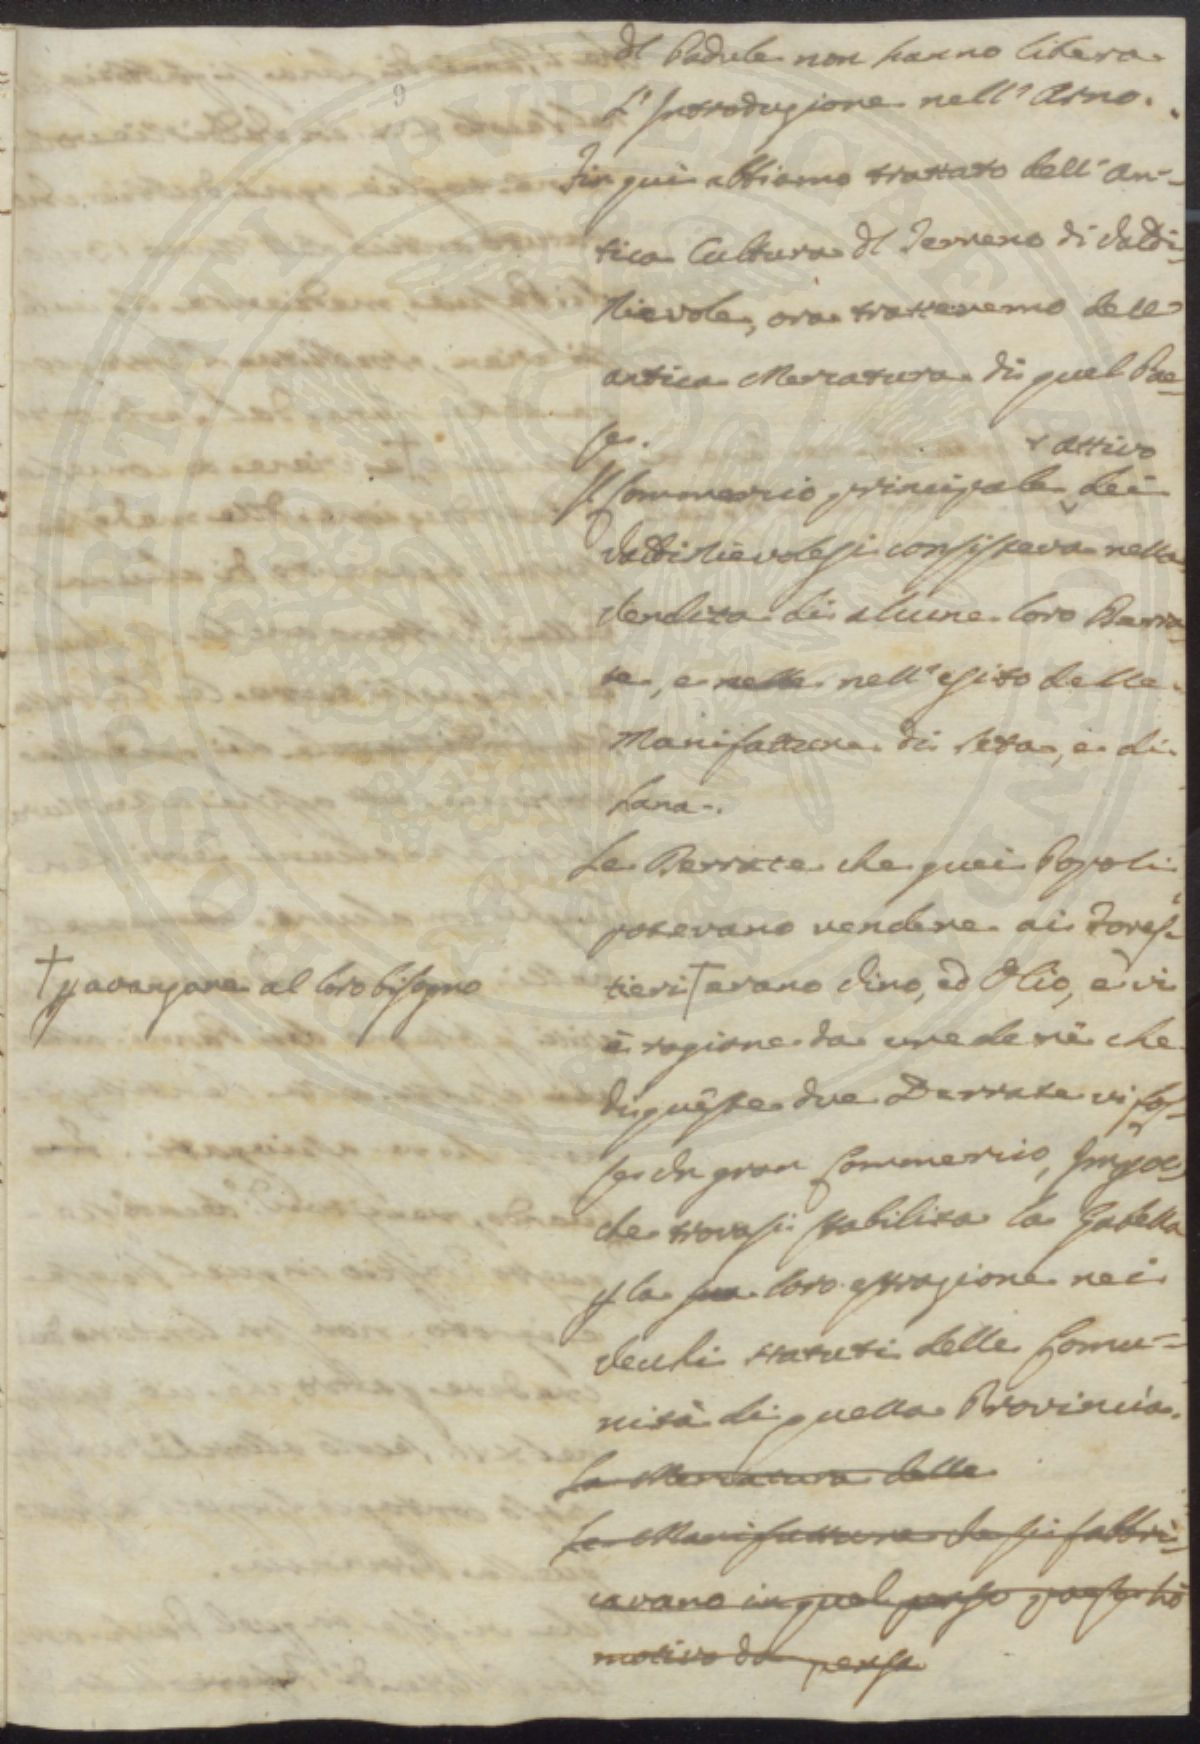 9
dl Padule non hanno libera
L'Introduzione nell'Arno.
Fin quì abbiamo trattato dell'An-
tica Cultura dl Terreno di Valdi-
Nievole, ora tratteremo dell'
antica Mercatura di quel Pae-
se.
attivo
Il Commercio principale dei
Valdinievolesi consisteva nella
Vendita di alcune loro Derra-
te, e nelle nell'esito delle
Manifatture di Seta, e di
Lana.
Le Derrate che quei Popoli
potevano vendere ai Fores-
† p avanzare al loro bisogno
tieri † erano Vino, ed Olio, e vi
è ragione da credere che
di queste due Derrate vi fos-
se un gran Commercio, Impoc
che trovasi stabilita la Gabella
p la sua loro estrazione nei
Vecchi statuti delle Comu-
nità di quella Provincia.
La Mercatura delle
Le Manifatture che si fabbri-
cavano in quel paese ho
motivo da